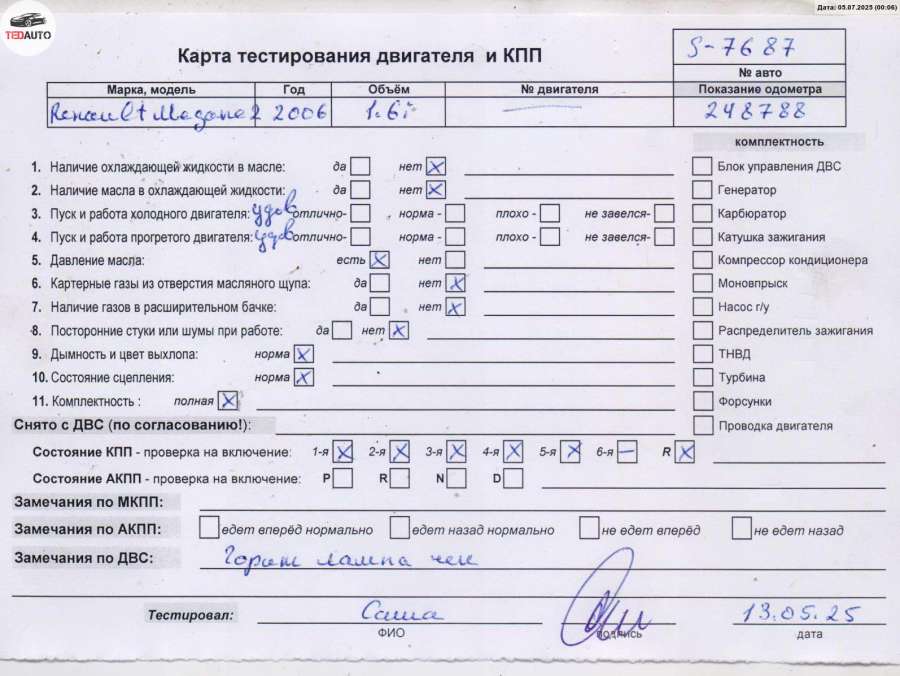 Дата: 05.07.2025 (00:06)
TEDAUTO
Карта тестирования двигателя и КПП
S-7687
№ авто
Марка, модель Год Объём № двигателя Показание одометра
Renault Megane 2 2006 1.6i — 248788
комплектность
1. Наличие охлаждающей жидкости в масле: да нет X
Блок управления ДВС
2. Наличие масла в охлаждающей жидкости: да нет X
Генератор
3. Пуск и работа холодного двигателя: удов отлично- норма - плохо - не завелся-
Карбюратор
4. Пуск и работа прогретого двигателя: удов отлично- норма - плохо - не завелся-
Катушка зажигания
5. Давление масла: есть X нет
Компрессор кондиционера
6. Картерные газы из отверстия масляного щупа: да нет X
Моновпрыск
7. Наличие газов в расширительном бачке: да нет X
Насос г/у
8. Посторонние стуки или шумы при работе: да нет X
Распределитель зажигания
9. Дымность и цвет выхлопа: норма X
ТНВД
10. Состояние сцепления: норма X
Турбина
11. Комплектность : полная X
Форсунки
Снято с ДВС (по согласованию!):
Проводка двигателя
Состояние КПП - проверка на включение: 1-я X 2-я X 3-я X 4-я X 5-я X 6-я — R X
Состояние АКПП - проверка на включение: P R N D
Замечания по МКПП:
Замечания по АКПП: едет вперёд нормально едет назад нормально не едет вперёд не едет назад
Замечания по ДВС: Горит лампа чек
Тестировал: Саша 13.05.25
ФИО подпись дата